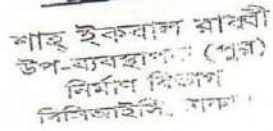 শাহ্ ইকবাল রাব্বী
উপ-ব্যবস্থাপক (পুর)
নির্মাণ বিভাগ
বিসিআইসি, ঢাকা।